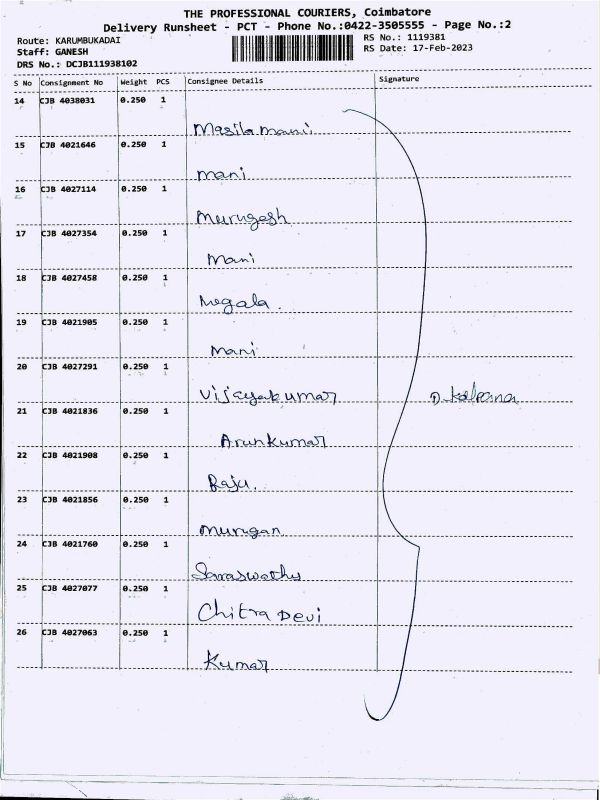 THE PROFESSIONAL COURIERS, Coimbatore
Delivery Runsheet - PCT - Phone No.:0422-3505555 - Page No.:2
Route: KARUMBUKADAI
Staff: GANESH
DRS No.: DCJB111938102
RS No.: 1119381
RS Date: 17-Feb-2023
S No Consignment No Weight PCS Consignee Details Signature
14 CJB 4038031 0.250 1
Masilamani
15 CJB 4021646 0.250 1
mani
16 CJB 4027114 0.250 1
Murugesh
17 CJB 4027354 0.250 1
Mani
18 CJB 4027458 0.250 1
Megala.
19 CJB 4021905 0.250 1
Mani
20 CJB 4027291 0.250 1
Vijayakumar D. kalpana
21 CJB 4021836 0.250 1
Arunkumar
22 CJB 4021908 0.250 1
Raju.
23 CJB 4021856 0.250 1
murugan
24 CJB 4021760 0.250 1
Saraswathy
25 CJB 4027077 0.250 1
Chitra Devi
26 CJB 4027063 0.250 1
Kumar